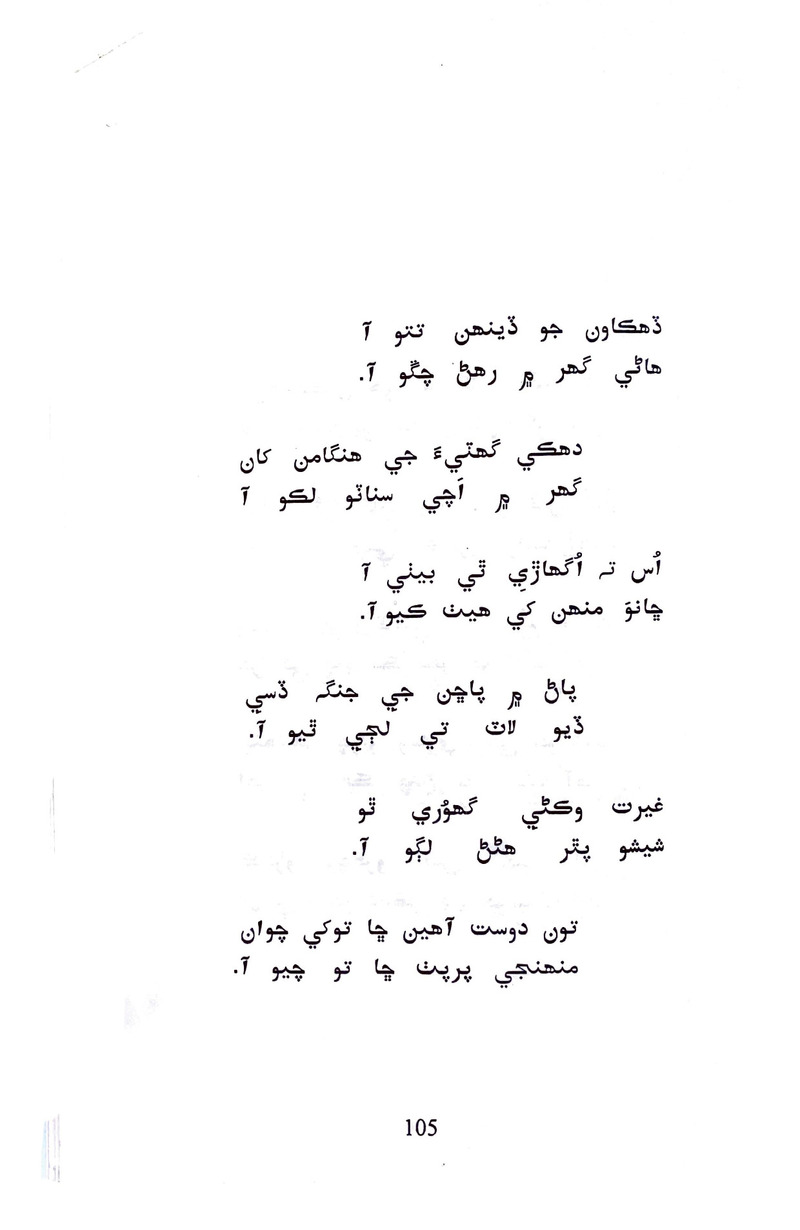 ڏهڪاون جو ڏينهن تتو آ
هاڻي گهر ۾ رهڻ چڱو آ.
دهڪي گهٽيءَ جي هنگامن کان
گهر ۾ اَچي سناٽو لڪو آ
اُس تہ اُگهاڙِي ٿي بيٺي آ
ڇانوَ منهن کي هيٺ ڪيو آ.
پاڻ ۾ پاڇن جي جنگہ ڏسي
ڏيو لاٽ تي لڄي ٿيو آ.
غيرت وڪڻي گهوُري ٿو
شيشو پٿر هڻڻ لڳو آ.
تون دوست آهين ڇا توکي چوان
منهنجي پرپٺ ڇا تو چيو آ.
105